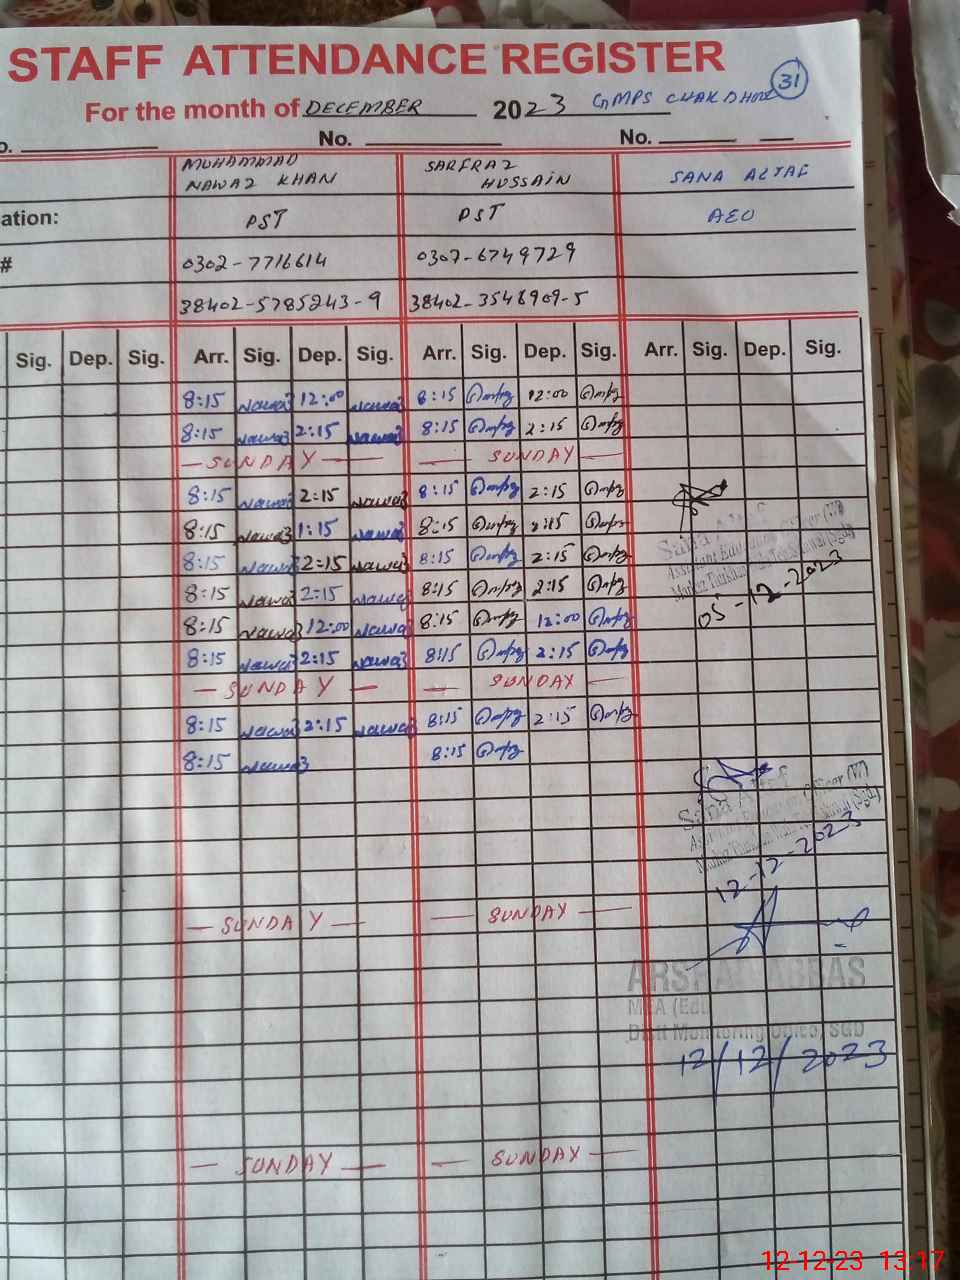 STAFF ATTENDANCE REGISTER
For the month of DECEMBER 2023 GMPS CHAK DHORI 31
No. No.
MUHAMMAD NAWAZ KHAN SARFRAZ HUSSAIN SANA ALTAF
ation: PST PST AEO
# 0302-7716614 0307-6749729
38402-5785243-9 38402-3548909-5
Sig. Dep. Sig. Arr. Sig. Dep. Sig. Arr. Sig. Dep. Sig. Arr. Sig. Dep. Sig.
8:15 Nawaz 12:00 Nawaz 8:15 12:00
8:15 Nawaz 2:15 Nawaz 8:15 2:15
— SUNDAY — — SUNDAY —
8:15 Nawaz 2:15 Nawaz 8:15 2:15
8:15 Nawaz 1:15 Nawaz 8:15 2:15
8:15 Nawaz 2:15 Nawaz 8:15 2:15
8:15 Nawaz 2:15 Nawaz 8:15 2:15
8:15 Nawaz 12:00 Nawaz 8:15 12:00
8:15 Nawaz 2:15 Nawaz 8:15 2:15
— SUNDAY — — SUNDAY —
8:15 Nawaz 2:15 Nawaz 8:15 2:15
8:15 Nawaz 8:15
Sana Altaf
Assistant Education Officer (W)
05-12-2023
Sana Altaf
Assistant Education Officer (W)
12-12-2023
— SUNDAY — — SUNDAY —
ARSHAD ABBAS
MEA (Edu
Distt Monitoring Office, SGD
12/12/2023
— SUNDAY — — SUNDAY —
12-12-23 13:17